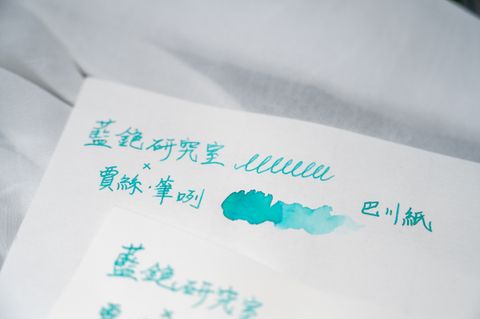 藍銫研究室
×
賈絲·筆咧
巴川紙
藍銫研究室
×